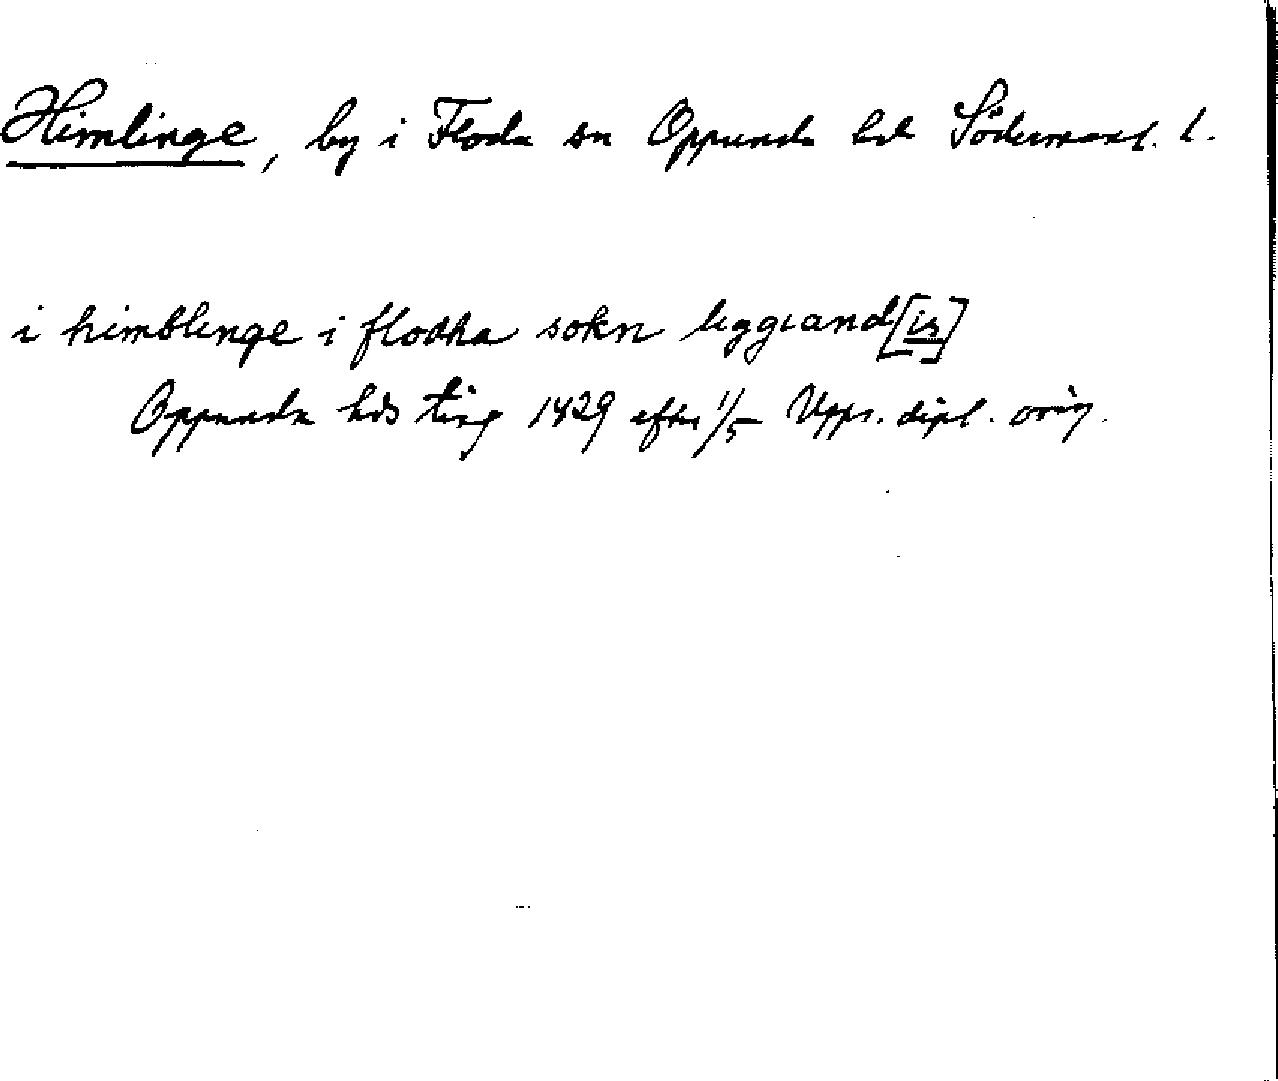 Himlinge, by i Floda sn Oppunda hd Södermanl. l.
i himblinge i flodha sokn liggiand[is]
Oppunda hds ting 1429 efter 1/5 Upps. dipl. orig.